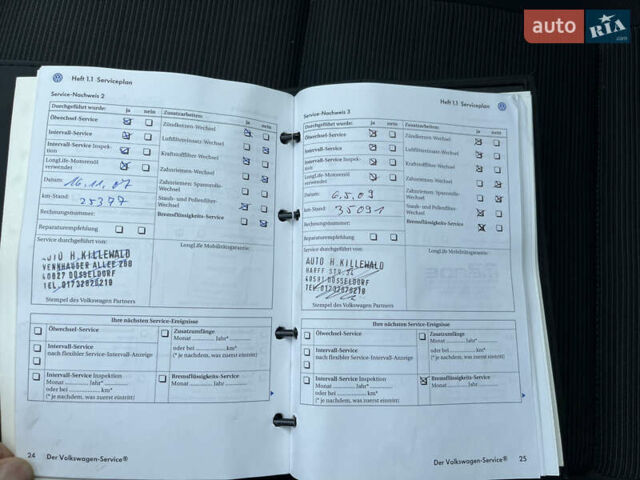 auto RIA.com
Heft 1.1 Serviceplan
Service-Nachweis 2
Durchgeführt wurde: ja nein Zusatzarbeiten: ja nein
Ölwechsel-Service Zündkerzen-Wechsel
Intervall-Service Luftfiltereinsatz-Wechsel
Intervall-Service Inspek-
tion Kraftstofffilter-Wechsel
LongLife-Motorenöl
verwendet Zahnriemen-Wechsel
Datum: 16.11.07 Zahnriemen-Spannrolle-
Wechsel
km-Stand: 25377 Staub- und Pollenfilter-
Wechsel
Rechnungsnummer: Bremsflüssigkeits-Service
Reparaturempfehlung
Service durchgeführt von: LongLife Mobilitätsgarantie:
AUTO H.KILLEWALD
VENNHAUSER ALLEE 208
40627 DÜSSELDORF
TEL.01732826218
Stempel des Volkswagen Partners
Ihre nächsten Service-Ereignisse
Ölwechsel-Service Zusatzumfänge
Monat Jahr*
Intervall-Service oder bei km*
nach flexibler Service-Intervall-Anzeige (* je nachdem, was zuerst eintritt)
Intervall-Service Inspektion Bremsflüssigkeits-Service
Monat Jahr* Monat Jahr
oder bei km*
(* je nachdem, was zuerst eintritt)
24 Der Volkswagen-Service®
Heft 1.1 Serviceplan
Service-Nachweis 3
Durchgeführt wurde: ja nein Zusatzarbeiten: ja nein
Ölwechsel-Service Zündkerzen-Wechsel
Intervall-Service Luftfiltereinsatz-
Wechsel
Intervall-Service Inspek-
tion Kraftstofffilter-Wechsel
LongLife-Motorenöl
verwendet Zahnriemen-Wechsel
Datum: 6.5.09 Zahnriemen-Spannrolle-
Wechsel
km-Stand: 35091 Staub- und Pollenfilter-
Wechsel
Rechnungsnummer: Bremsflüssigkeits-Service
Reparaturempfehlung
Service durchgeführt von: LongLife Mobilitätsgarantie:
AUTO H.KILLEWALD
HARFF STR.
40591 DÜSSELDORF
TEL.01732826218
Stempel des Volkswagen Partners
Ihre nächsten Service-Ereignisse
Ölwechsel-Service Zusatzumfänge
Monat Jahr*
Intervall-Service oder bei km*
nach flexibler Service-Intervall-Anzeige (* je nachdem, was zuerst eintritt)
Intervall-Service Inspektion Bremsflüssigkeits-Service
Monat Jahr* Monat Jahr
oder bei km*
(* je nachdem, was zuerst eintritt)
Der Volkswagen-Service® 25